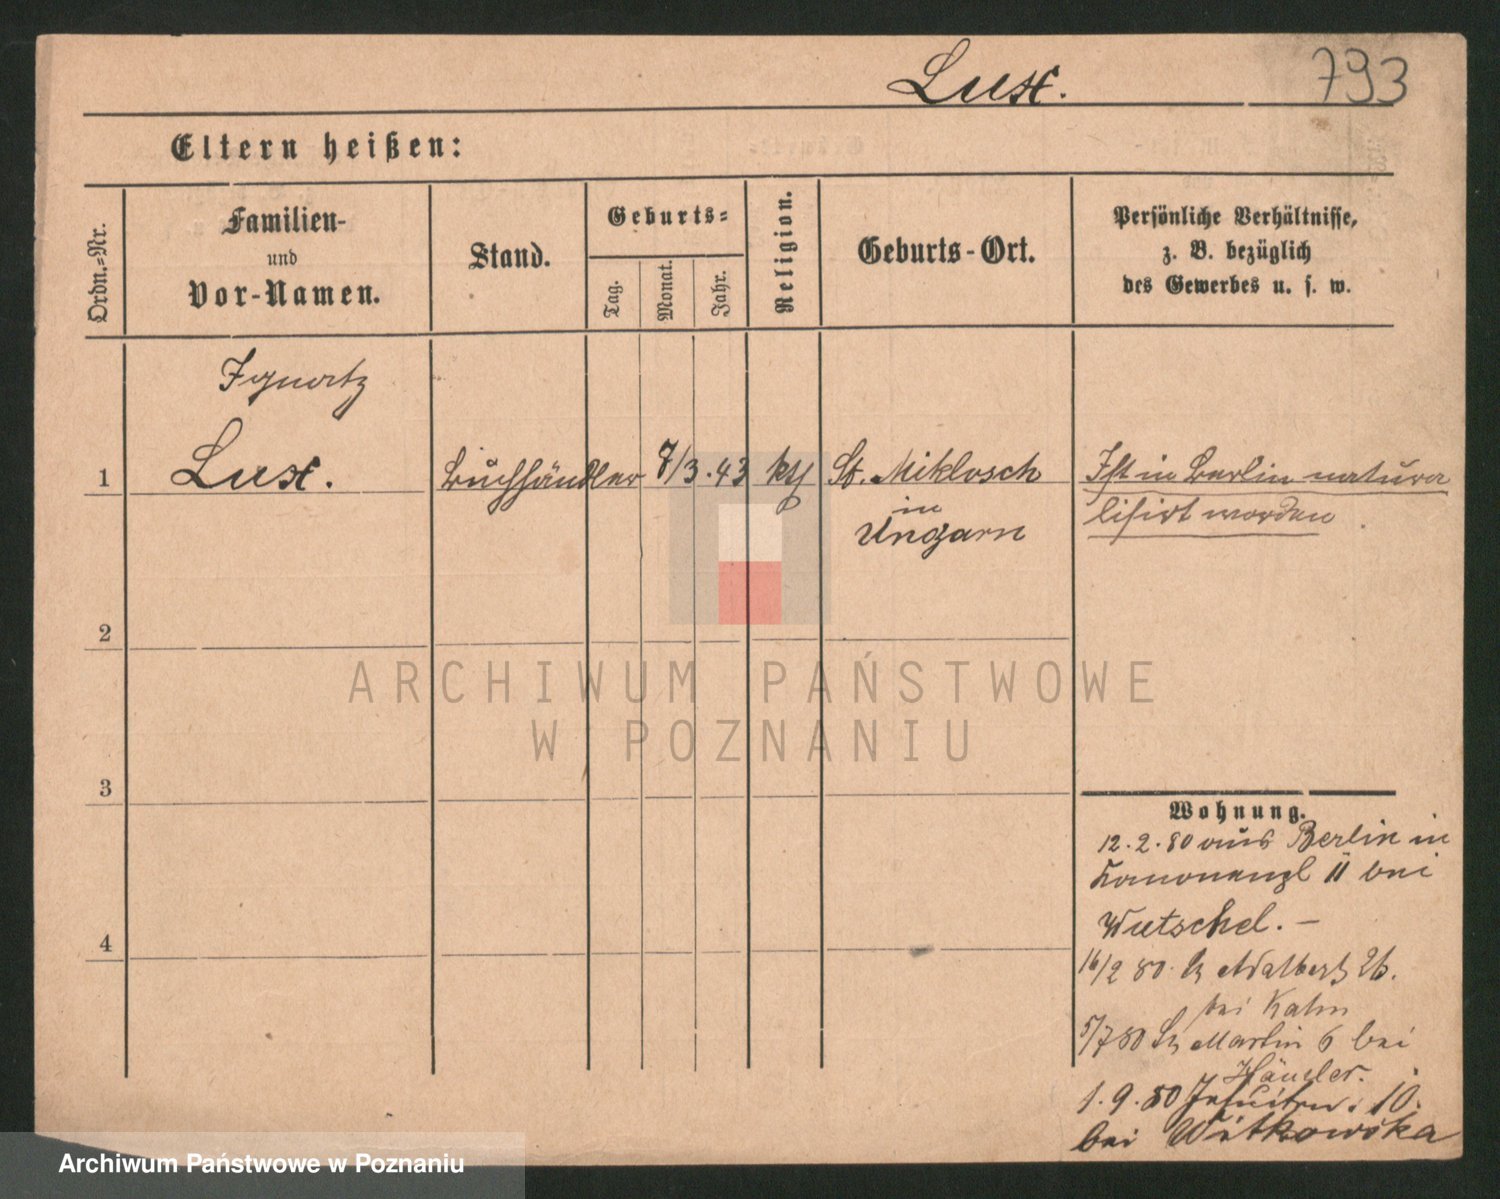 Lux.
793
Eltern heißen:
Ordn.=Nr.
Familien-
und
Vor-Namen.
Stand.
Geburts=
Tag.
Monat.
Jahr.
Religion.
Geburts-Ort.
Persönliche Verhältnisse,
z. B. bezüglich
des Gewerbes u. s. w.
Ignatz
1 Lux. Buchhändler 7/3. 43 kth St. Miklosch
in
Ungarn
Ist in Berlin natura
lisirt worden
2
3
4
Wohnung.
12. 2. 80 aus Berlin in
Kanonenpl 11 bei
Wutschel. –
16/2 80. St Adalbert 26.
bei Kahn
5/7 80 St Martin 6 bei
Händler.
1. 9. 80 Jesuitenst. 10.
bei Witkowska
ARCHIWUM PAŃSTWOWE
W POZNANIU
Archiwum Państwowe w Poznaniu